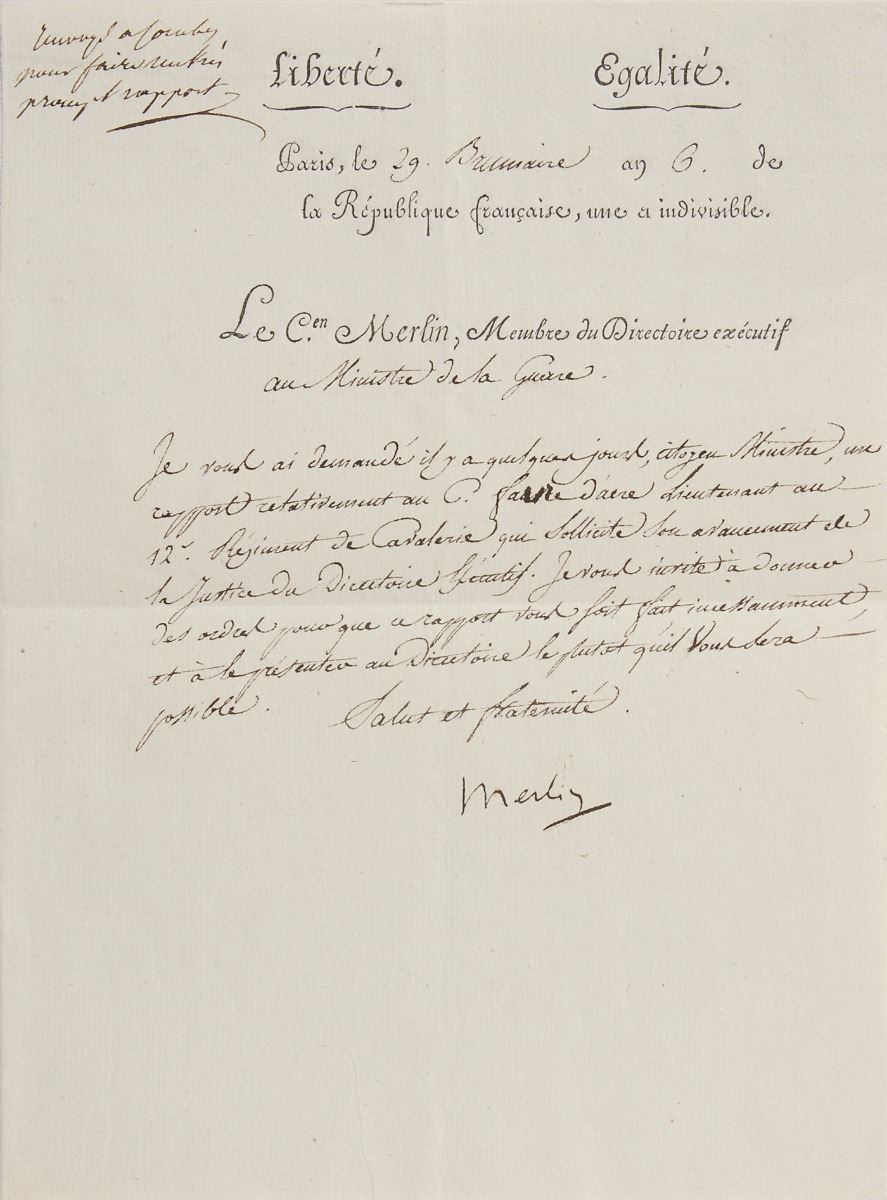 pour faire
prompt rapport
Liberté. Egalité.
Paris, le 29. Brumaire an 6. de
la République française, une et indivisible.
Le C.en Merlin, Membre du Directoire exécutif
au Ministre de la Guerre.
Je vous ai demandé il y a quelques jours, citoyen Ministre, un
rapport relativement au C. Lieutenant au
12e. Régiment de Cavalerie qui sollicite son avancement de
la Justice du Directoire Exécutif. Je vous invite à donner
des ordres pour que ce rapport vous soit fait incessamment,
et à le présenter au Directoire le plutot qu'il vous sera
possible.
Salut et fraternité.
Merlin